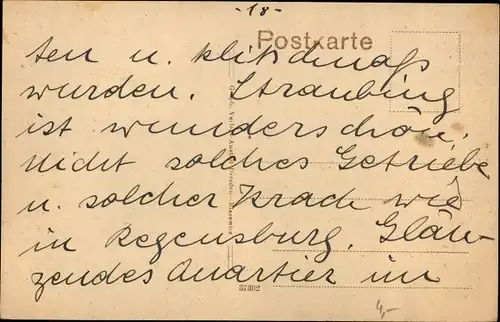 -18-
Postkarte
ten u. klitschnaß
wurden. Straubing
ist wunderschön,
Nicht solches Getriebe
u. solcher Krach wie
in Regensburg. Glän-
zendes Quartier im
37302
4,-